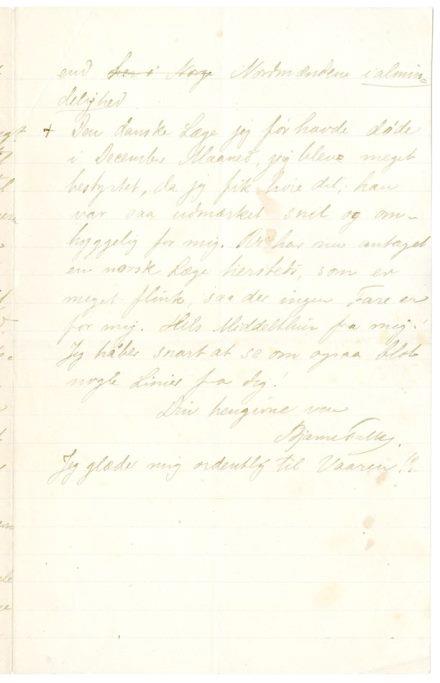 end her i Norge Nordmændene i almin-
delighed
+ Den danske Læge jeg før havde døde
i December Maaned, jeg blev meget
bestyrtet, da jeg fik høre det; han
var saa udmærket snil og om-
hyggelig for mig. har nu antaget
en norsk Læge hersteds, som er
meget flink, saa der ingen Fare er
for mig. Hils Middelthun fra mig!
Jeg håber snart at se om ogsaa blot
nogle Linier fra dig!
Din hengivne ven
Bjarne Falk.
Jeg glæder mig ordentlig til Vaaren!!